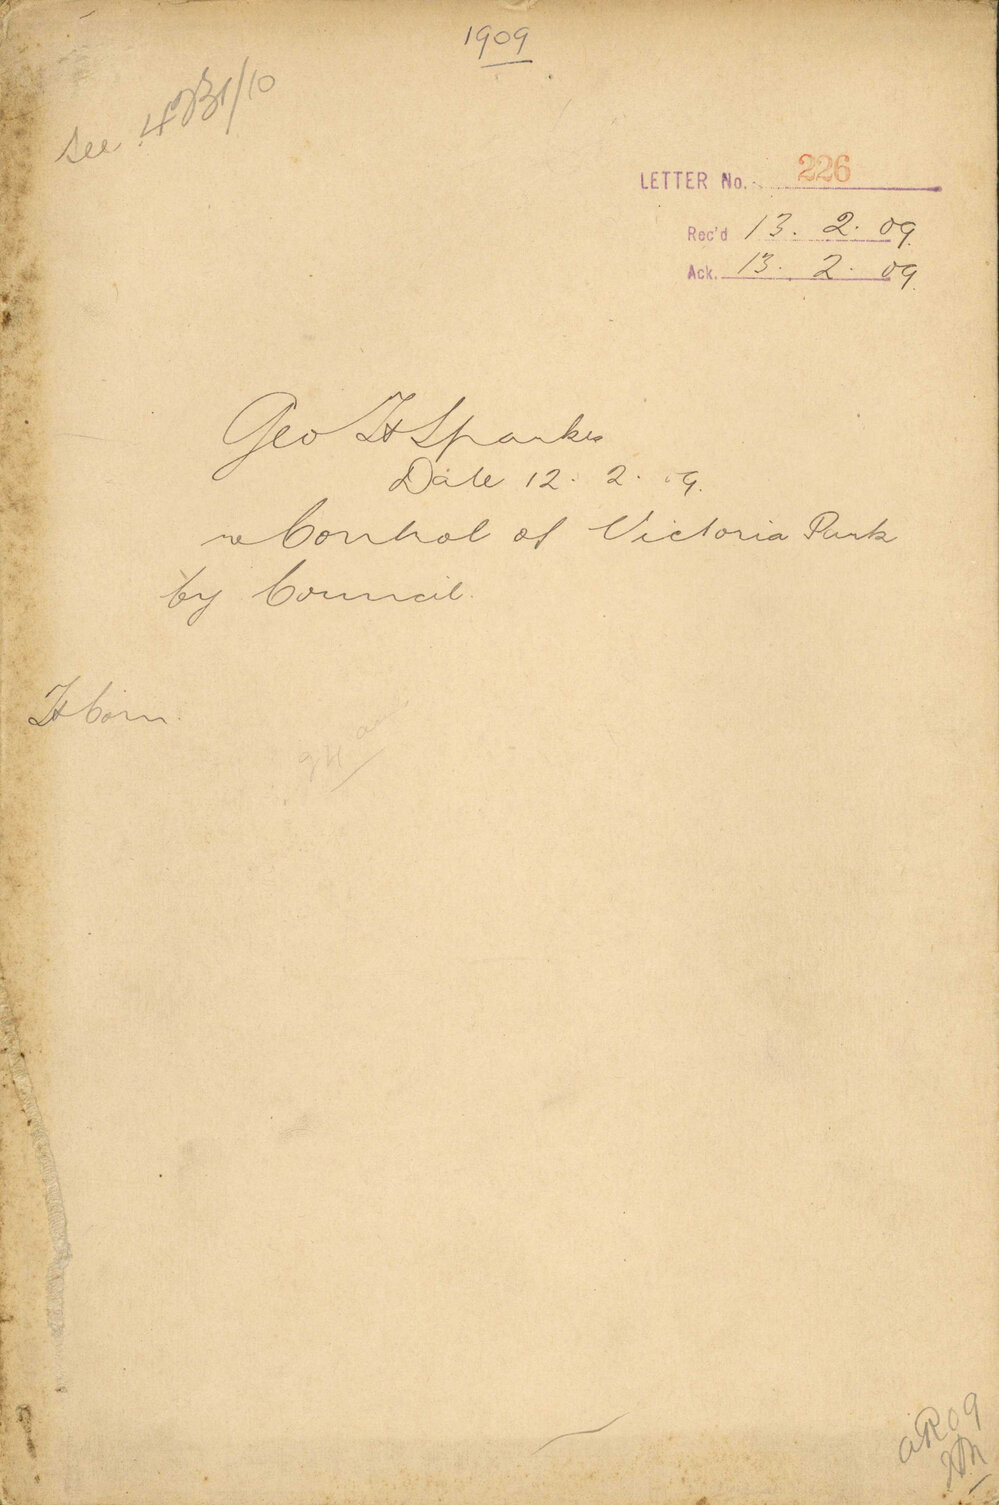 1909
See
LETTER No. 226
Rec'd 13. 2. 09.
Ack. 13. 2. 09.
Geo H Sparkes
Date 12. 2. 09.
re Control of Victoria Park
by Council.
H Com.